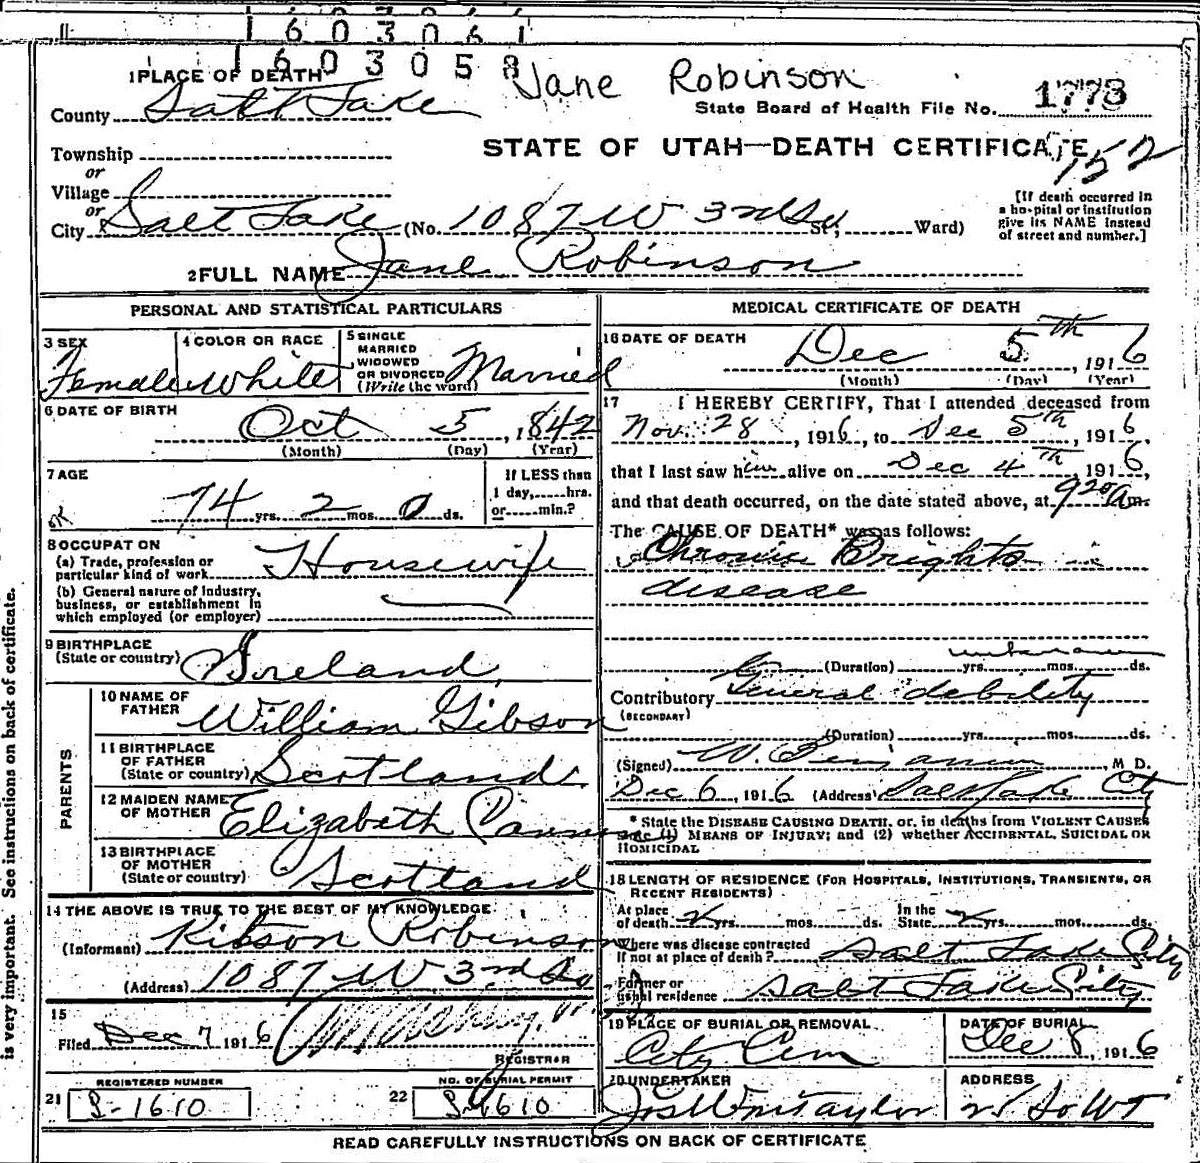 1603061
1603058
Jane Robinson
1 PLACE OF DEATH
County Salt Lake
State Board of Health File No. 1773
Township
or
STATE OF UTAH—DEATH CERTIFICATE
152
Village
or
City Salt Lake (No. 1087 W 3rd So St; Ward)
[If death occurred in
a hospital or institution
give its NAME instead
of street and number.]
2 FULL NAME Jane Robinson
PERSONAL AND STATISTICAL PARTICULARS
3 SEX
Female
4 COLOR OR RACE
White
5 SINGLE
MARRIED
WIDOWED
OR DIVORCED
(Write the word)
Married
6 DATE OF BIRTH
Oct 5, 1842
(Month) (Day) (Year)
7 AGE
74 yrs. 2 mos. 0 ds.
If LESS than
1 day,......hrs.
or......min.?
8 OCCUPATION
(a) Trade, profession or
particular kind of work Housewife
(b) General nature of Industry,
business, or establishment in
which employed (or employer)
9 BIRTHPLACE
(State or country) Ireland
PARENTS
10 NAME OF
FATHER William Gibson
11 BIRTHPLACE
OF FATHER
(State or country) Scotland
12 MAIDEN NAME
OF MOTHER Elizabeth
13 BIRTHPLACE
OF MOTHER
(State or country) Scotland
14 THE ABOVE IS TRUE TO THE BEST OF MY KNOWLEDGE
(Informant) Kibson Robinson
(Address) 1087 W 3rd So
15
Filed Dec 7 1916
REGISTRAR
REGISTERED NUMBER
21 S-1610
NO. OF BURIAL PERMIT
22 S-1610
MEDICAL CERTIFICATE OF DEATH
16 DATE OF DEATH
Dec 5th, 1916
(Month) (Day) (Year)
17 I HEREBY CERTIFY, That I attended deceased from
Nov. 28, 1916, to Dec 5th, 1916
that I last saw him alive on Dec 4th, 1916,
and that death occurred, on the date stated above, at 920 a m.
The CAUSE OF DEATH* was as follows:
Chronic Brights
disease
(Duration) unknown yrs. mos. ds.
Contributory General debility
(SECONDARY)
(Duration) yrs. mos. ds.
(Signed) W. Benjamin, M D.
Dec 6, 1916 (Address) Salt Lake City
* State the DISEASE CAUSING DEATH, or, in deaths from VIOLENT CAUSES
state (1) MEANS OF INJURY; and (2) whether ACCIDENTAL, SUICIDAL OR
HOMICIDAL
18 LENGTH OF RESIDENCE (FOR HOSPITALS, INSTITUTIONS, TRANSIENTS, OR
RECENT RESIDENTS)
At place
of death yrs. mos. ds.
In the
State yrs. mos. ds.
Where was disease contracted
If not at place of death? Salt Lake City
Former or
usual residence Salt Lake City
19 PLACE OF BURIAL OR REMOVAL
City Cem
DATE OF BURIAL
Dec 8, 1916
20 UNDERTAKER
Jos Wm Taylor
ADDRESS
21 So W T
READ CAREFULLY INSTRUCTIONS ON BACK OF CERTIFICATE
is very important. See instructions on back of certificate.